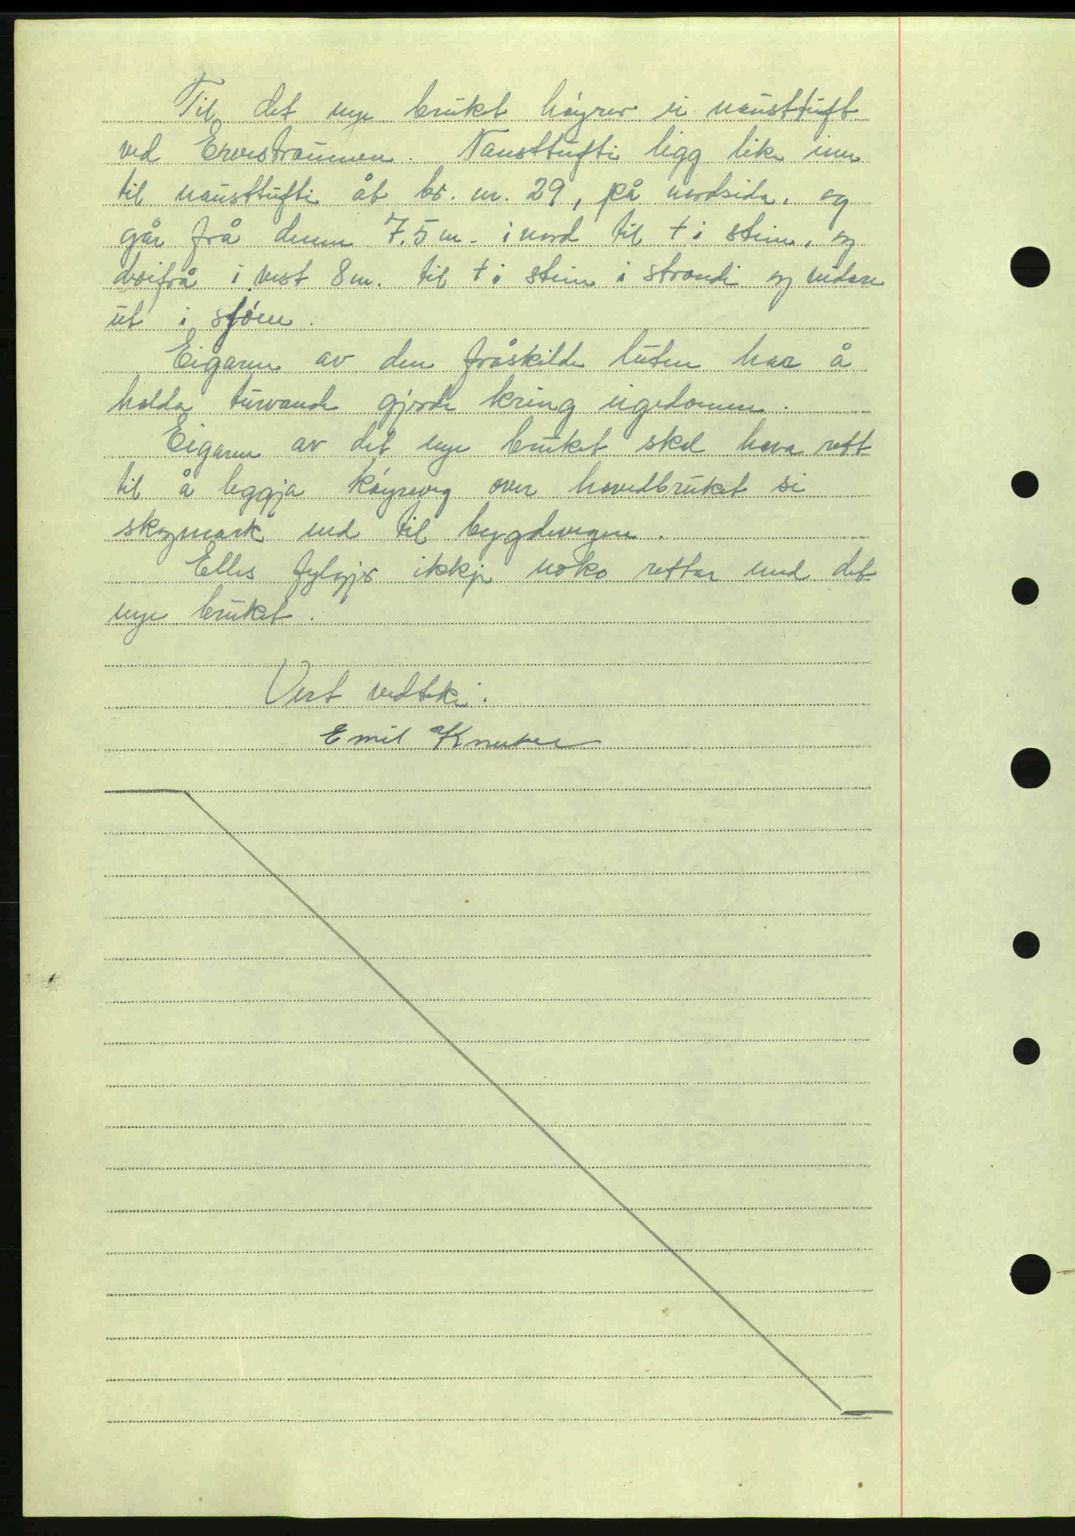 Til det nye bruket høyrer ei nausttuft
ved Ervestraumen. Nausttufti ligg like inn
til nausttufti åt br. nr. 29, på nordsida, og
går frå denne 7.5 m. i nord til + i stein, og
dvifrå i vest 8 m. til + i stein i strandi og vidare
ut i sjøen.
Eigaren av den fråskilde luten har å
halda turvande gjerde kring eigedomen.
Eigaren av det nye bruket skal hava rett
til å leggja køyreveg over hovedbruket si
skogmark ned til bygdevegen.
Elles fylgjer ikkje noko rettar med det
nye bruket.
Vert vedteki.
Emil